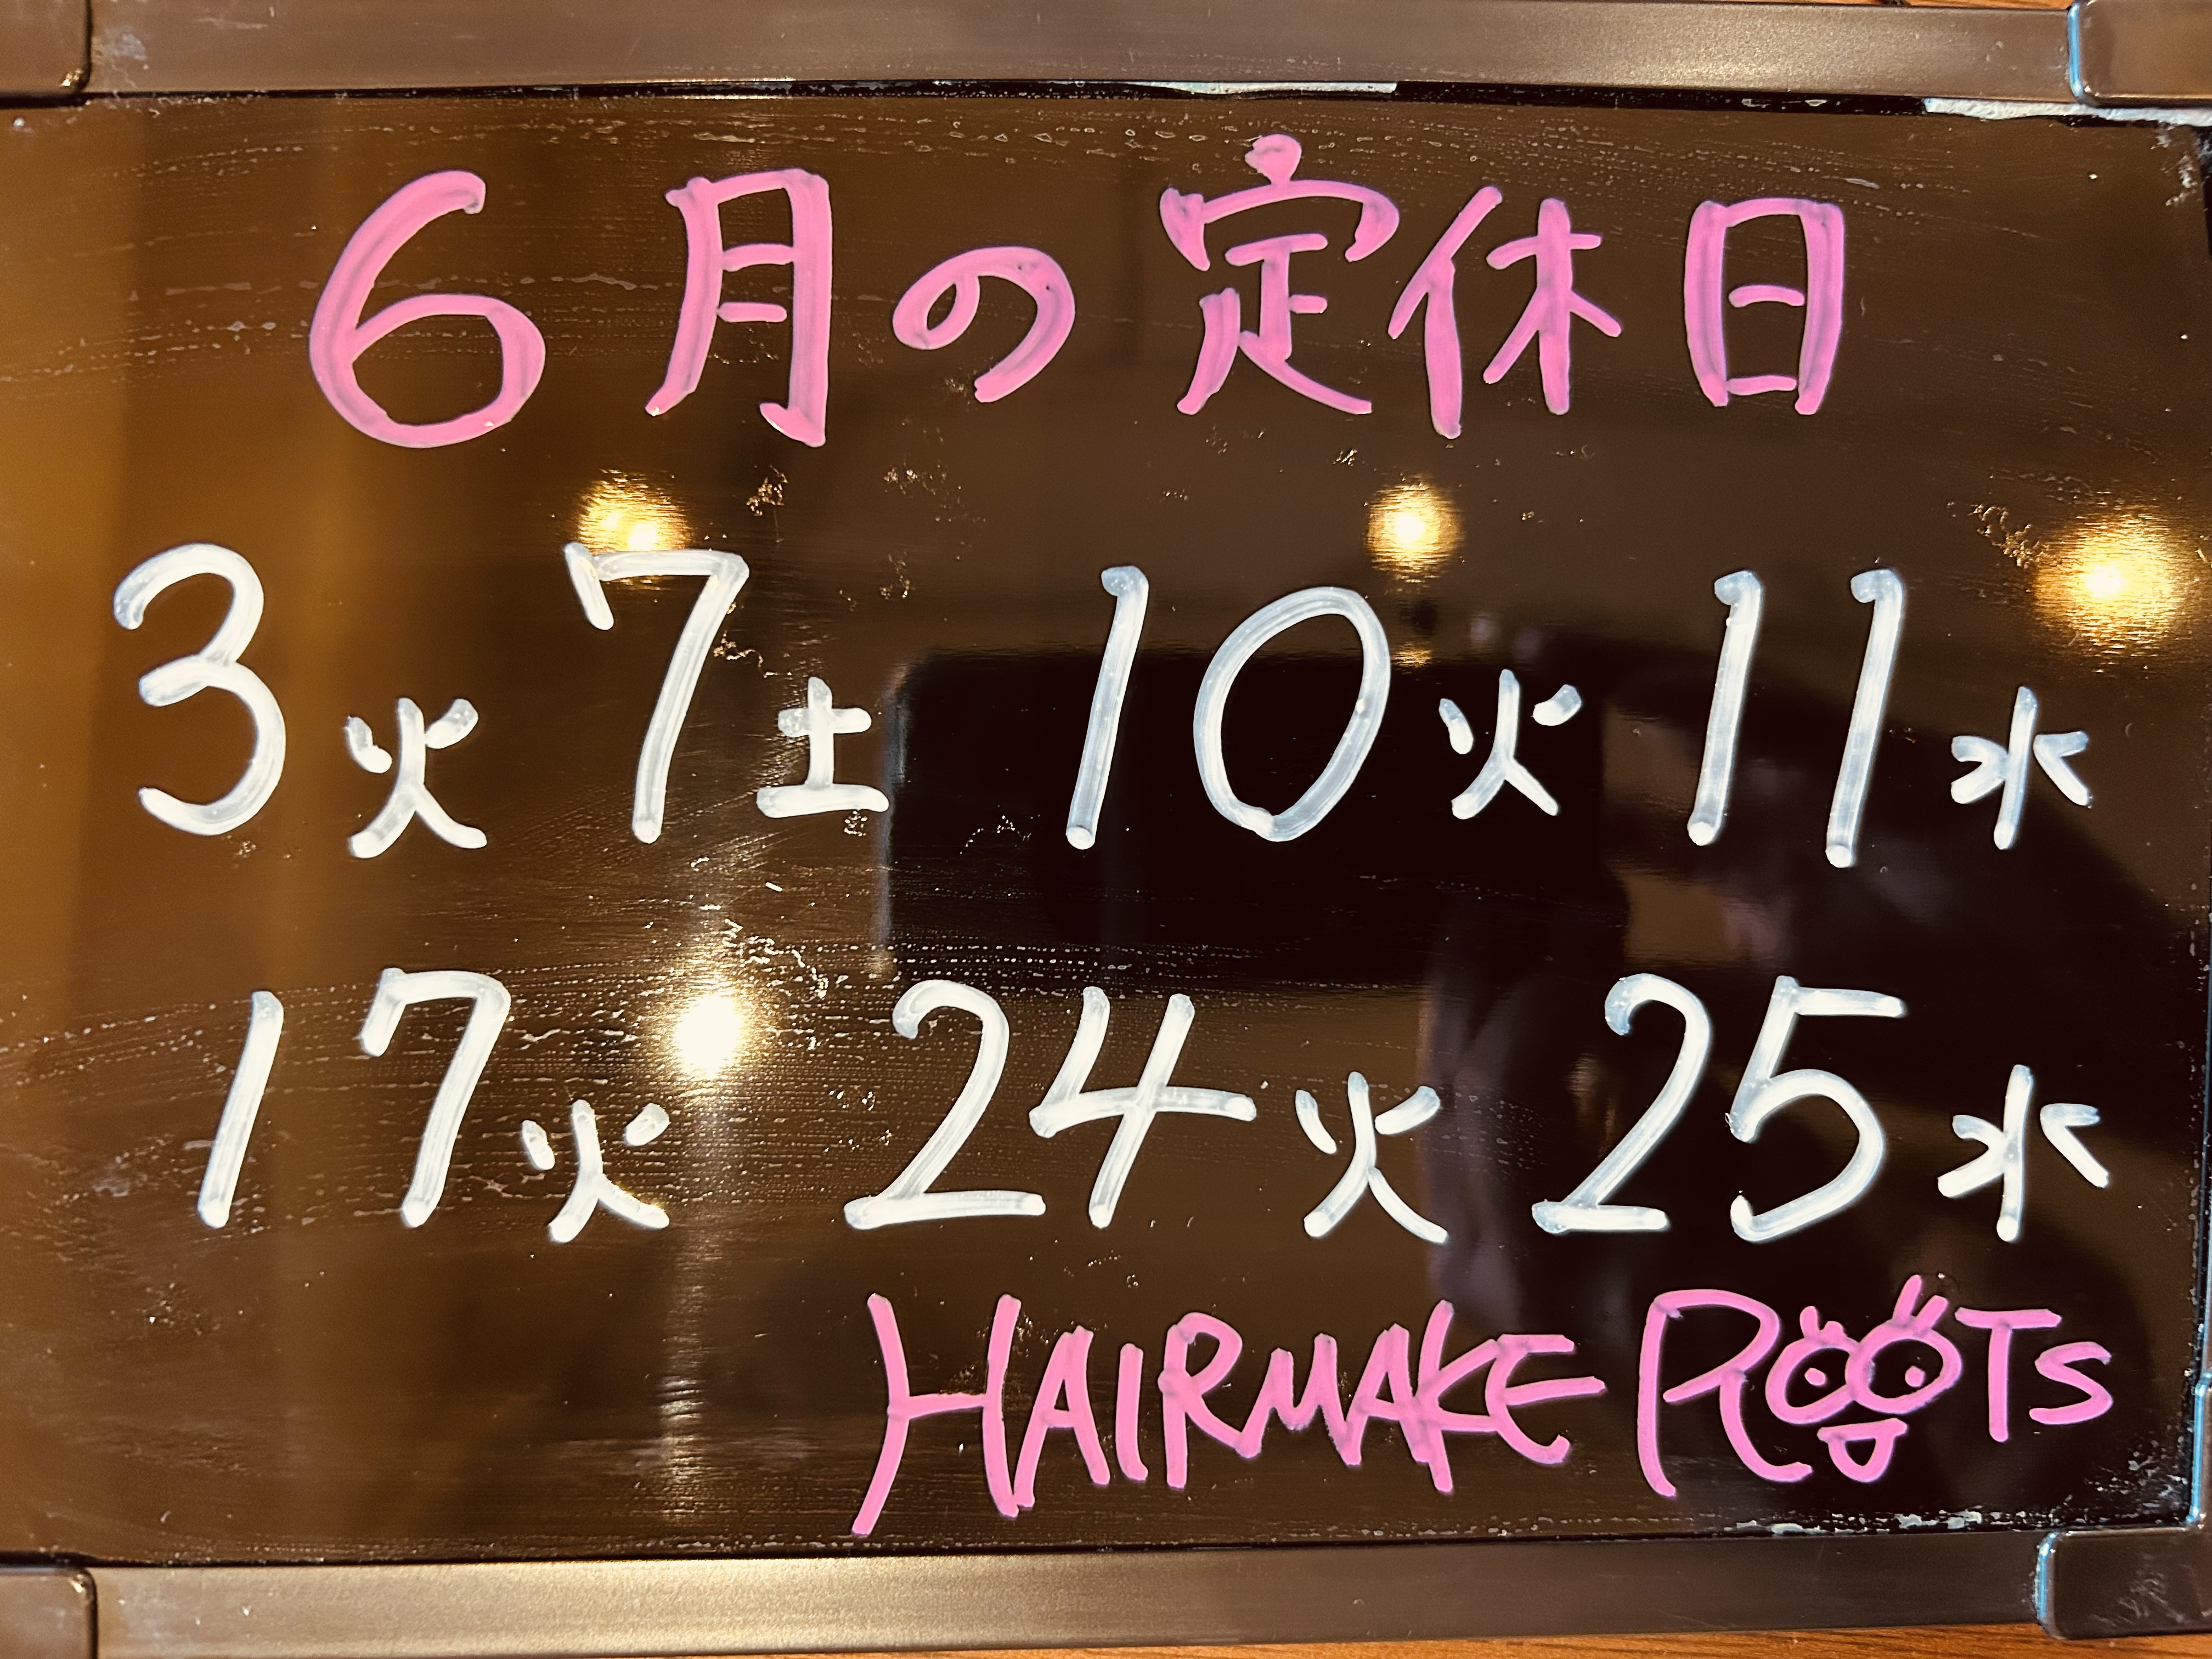 6月の定休日
3火 7土 10火 11水
17火 24火 25水
HAIRMAKE ROOTS